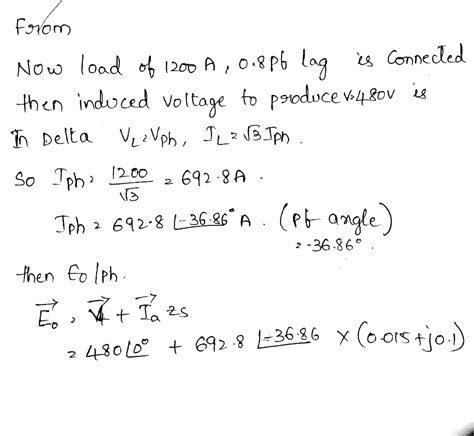 From
Now load of 1200 A, 0.8 pf lag is connected
then induced voltage to produce V=480V is
In Delta V_L = V_ph, I_L = √3 I_ph.
So I_ph = 1200/√3 = 692.8 A.
I_ph = 692.8 ∠-36.86° A. (Pf angle)
= -36.86°.
then E_o/ph.
E_o = V + I_a Zs
= 480∠0° + 692.8 ∠-36.86 × (0.015+j0.1)